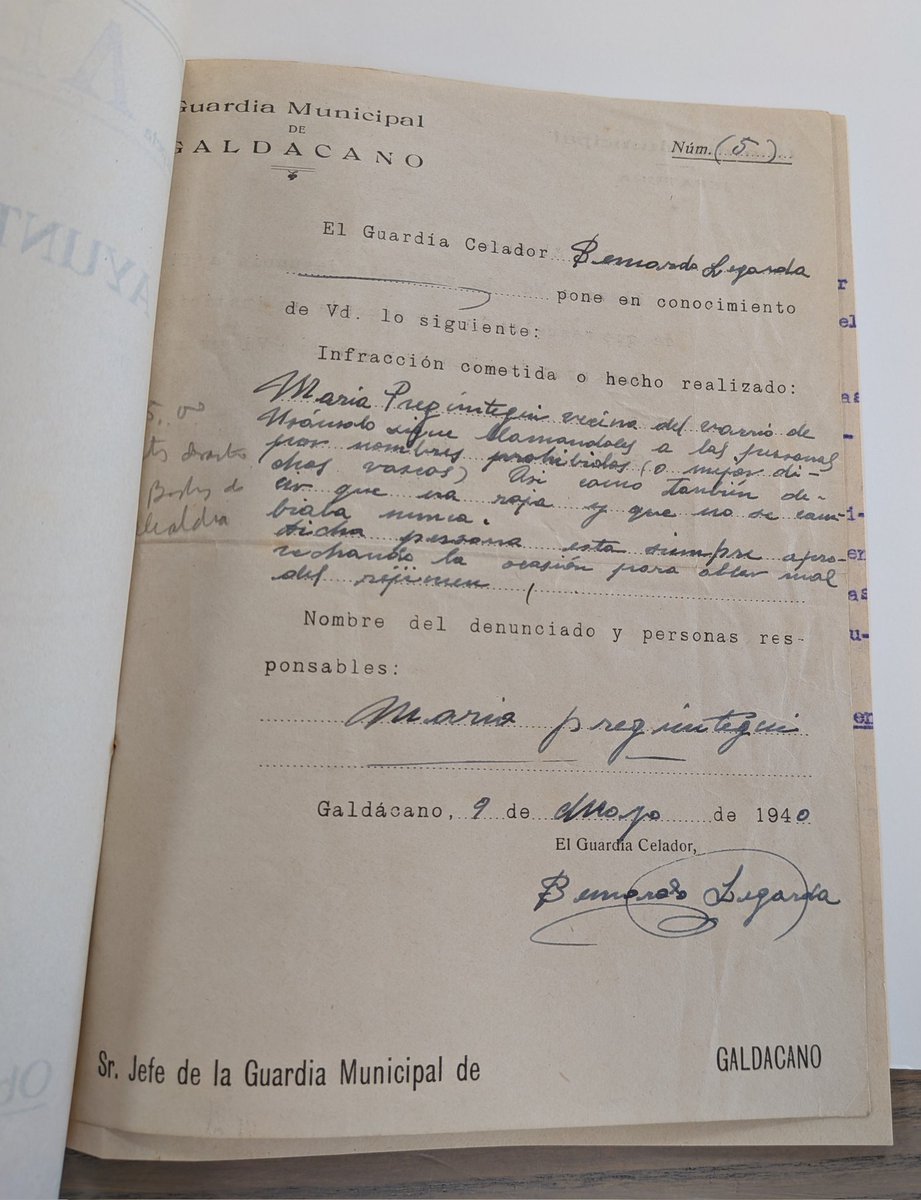 Guardia Municipal
DE
GALDACANO
Núm. (5)
El Guardia Celador Bernardo Legarda
pone en conocimiento
de Vd. lo siguiente:
Infracción cometida o hecho realizado:
Maria Preguntegui vecina del varrio de
Usánsolo sigue llamandoles a las personas
por nombres prohibidos (o mejor di-
chos vascos) Asi como tanvién de-
cir que era roja y que no se cam-
biaba nunca.
dicha persona esta siempre apro-
vechando la ocasión para obler mal
del rejimen
Nombre del denunciado y personas res-
ponsables:
Maria Preguntegui
Galdácano, 9 de Mayo de 1940
El Guardia Celador,
Bernardo Legarda
Sr. Jefe de la Guardia Municipal de GALDACANO